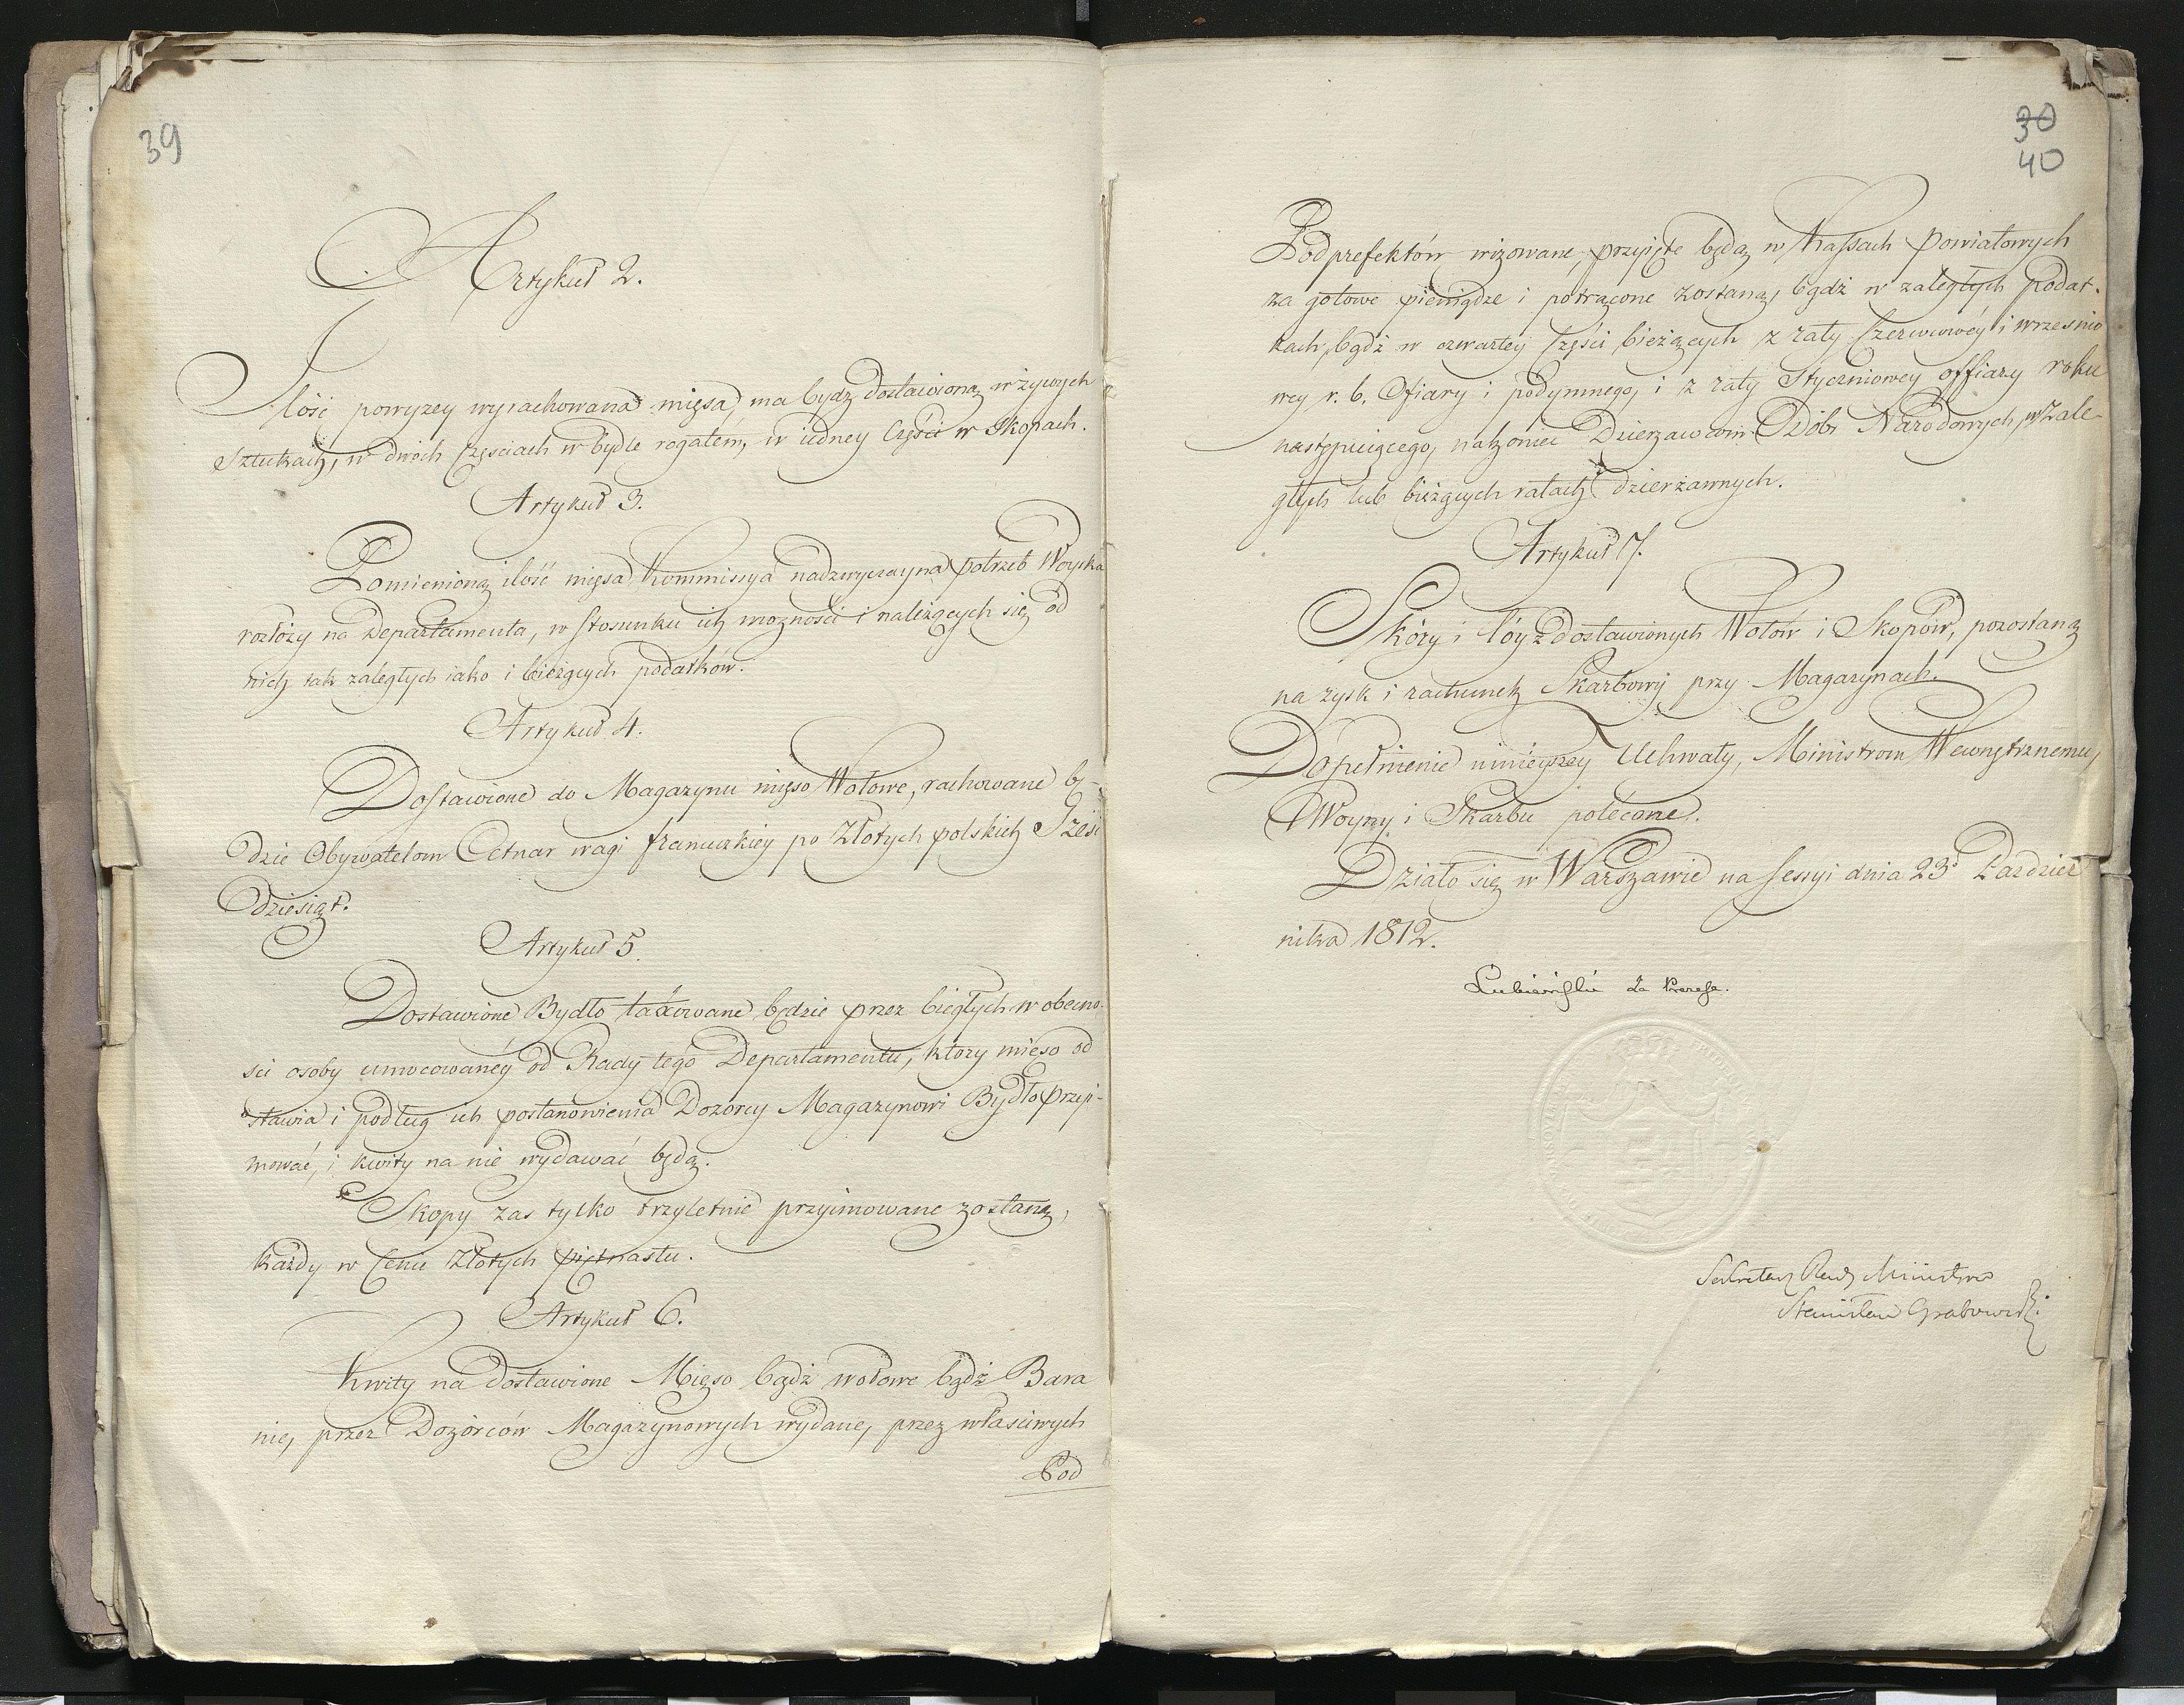 39
Artykuł 2.
Ilość powyzey wyrachowana mięsa, ma bydź dostawioną w żywych
Sztukach, w dwóch Częsciach w bydle rogatem, w iedney Części w Skopach.
Artykuł 3.
Pomienioną ilość mięsa Kommissya nadzwyczayna potrzeb Woyska
rozłoży na Departamenta, w stosunku ich możności i należących się od
nich tak zaległych iako i bieżących podatków.
Artykuł 4.
Dostawione do Magazynu mięso Wołowe, rachowane bę-
dzie Obywatelom Cetnar wagi francuzkiey po Złotych polskich Sześć
dziesiąt.
Artykuł 5.
Dostawione Bydło taxowane będzie przez biegłych w obecno-
sci osoby umocowaney od Rady tego Departamentu, ktory mięso od
stawia i podług ich postanowienia Dozorcy Magazynowi Bydło przyi-
mować, i kwity na nie wydawać będą.
Skopy zas tylko trzyletnie przyimowane zostaną,
każdy w Cenie Złotych piętnastu.
Artykuł 6.
Kwity na dostawione Mięso bądź wołowe bądź Bara
nie, przez Dozorców Magazynowych wydane, przez własciwych
Pod
30
40
Podprefektów wizowane, przyięte będą w Kassach Powiatowych
za gotowe pieniądze i potrącone zostaną, bądź w zaległych Podat-
kach, bądź w czwartey Części bieżących z raty Czerwcowéy i wrzesnio
wey r. b. Ofiary i podymnego, i z raty Styczniowey offiary roku
następuiącego, nakoniec Dzierzawcom Dóbr Narodowych, w Zale-
głych lub bieżących ratach dzierżawnych.
Artykuł 7.
Skóry i łóy z dostawionych Wołów i Skopów, pozostaną
na zysk i rachunek Skarbowy przy Magazynach.
Dopełnienie ninieyszey Uchwały, Ministrom Wewnętrznemu,
Woyny i Skarbu polécone.
Działo się w Warszawie na Sessyi dnia 23º Pazdzier
nika 1812.
Lubieński za Prezesa.
Sekretarz Rady Ministrów
Stanisław Grabowski.